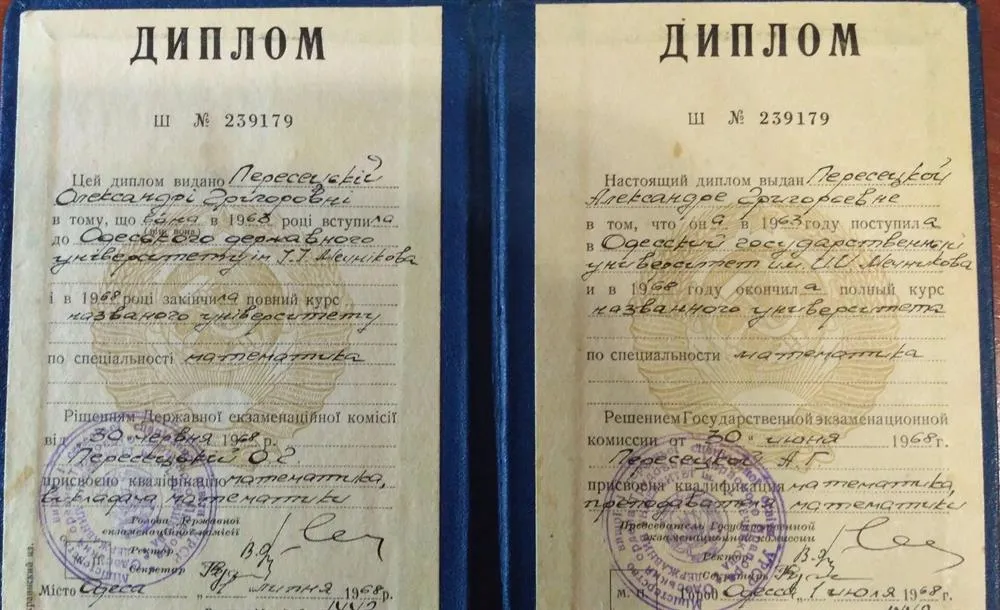 ДИПЛОМ
Ш № 239179
Цей диплом видано Пересецькій
Олександрі Григорівні
в тому, що вона в 1963 році вступила
(він, вона)
до Одеського державного
університету ім. І.І. Мечнікова
і в 1968 році закінчила повний курс
названого університету
по спеціальності математика
Рішенням Державної екзаменаційної комісії
від 30 червня 1968 р.
Пересецькій О.Г.
присвоєно кваліфікацію математика,
викладача математики
Голова Державної
екзаменаційної комісії
Ректор
Секретар
Місто Одеса липня 1968 р.
ДИПЛОМ
Ш № 239179
Настоящий диплом выдан Пересецкой
Александре Григорьевне
в том, что она в 1963 году поступила
в Одесский государственный
университет им. И.И. Мечникова
и в 1968 году окончила полный курс
названного университета
по специальности математика
Решением Государственной экзаменационной
комиссии от „30" июня 1968 г.
Пересецкой А.Г.
присвоена квалификация математика,
преподавателя математики
Председатель Государственной
экзаменационной комиссии
Ректор
Секретарь
Город Одесса „1" июля 1968 г.